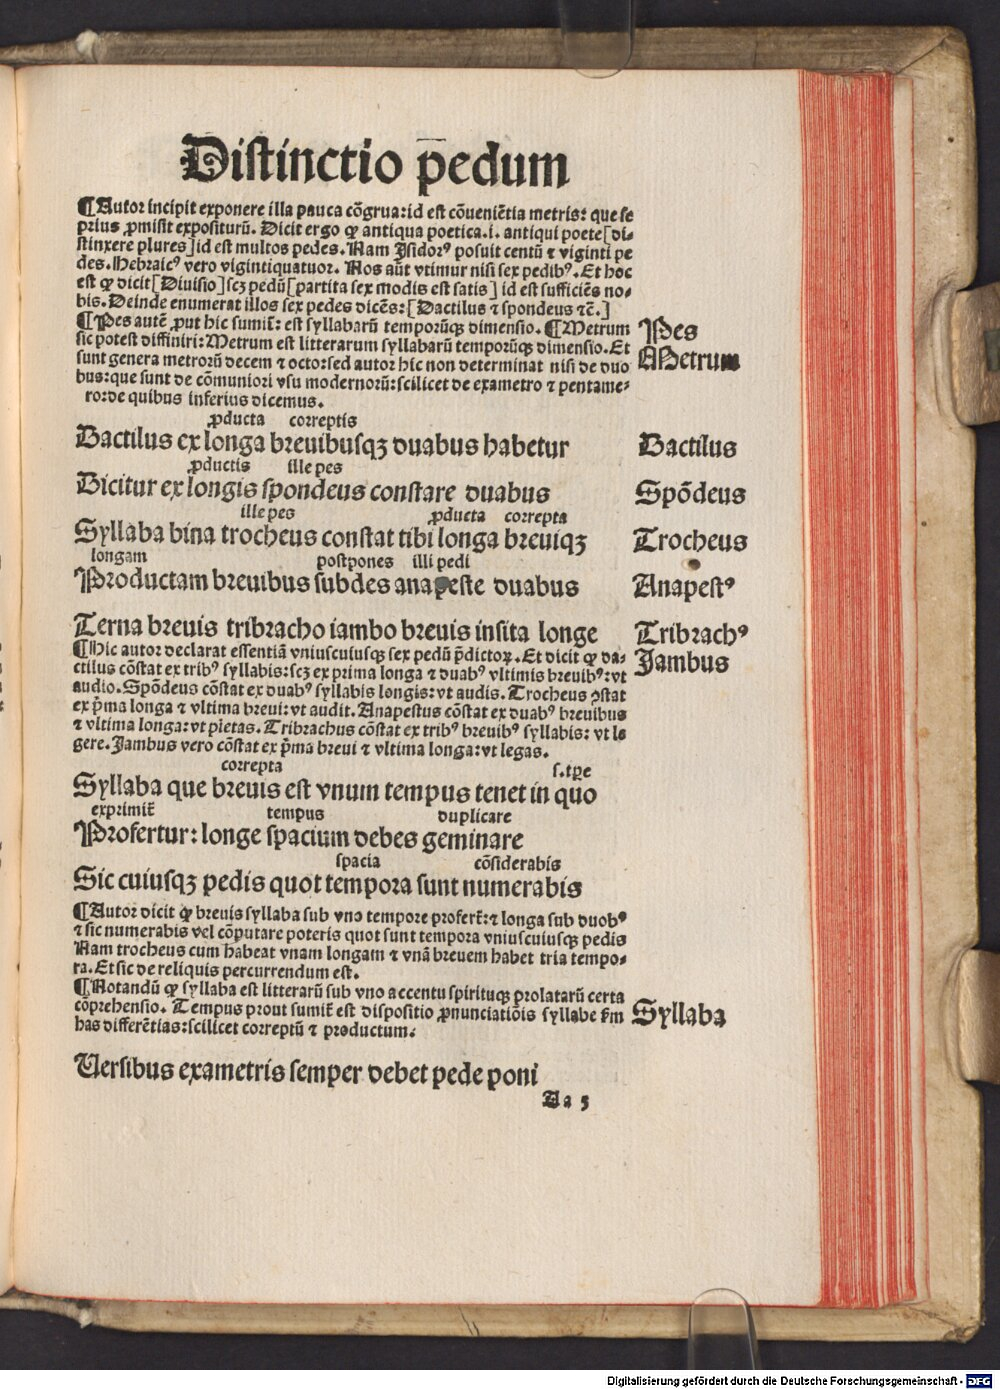 Distinctio pedum
¶Autor incipit exponere illa pauca cõgrua:id est cõueniẽtia metris: que se
prius ꝓmisit expositurũ. Dicit ergo ꝙ antiqua poetica.i. antiqui poete[di⸗
stinxere plures]id est multos pedes. Nam Isidorꝰ posuit centũ ⁊ viginti pe
des. Hebraicꝰ vero vigintiquatuor. Nos aũt vtimur nisi sex pedibꝰ. Et hoc
est ꝙ dicit[Diuisio]scꝫ pedũ[partita sex modis est satis] id est sufficiẽs no⸗
bis. Deinde enumerat illos sex pedes dicẽs:[Dactilus ⁊ spondeus ⁊c̃.]
¶Pes autẽ ꝓut hic sumit̃: est syllabarũ temporũqꝫ dimensio. ¶Metrum
Pes
sic potest diffiniri: Metrum est litterarum syllabarũ temporũqꝫ dimensio. Et
Metrum
sunt genera metrorũ decem ⁊ octo: sed autor hic non determinat nisi de duo
bus: que sunt de cõmuniori vsu modernorũ: scilicet de exametro ⁊ pentame⸗
ro: de quibus inferius dicemus.
ꝓducta correptis
Dactilus ex longa breuibusqꝫ duabus habetur
Dactilus
ꝓductis ille pes
Dicitur ex longis spondeus constare duabus
Spõdeus
ille pes ꝓducta correpta
Syllaba bina trocheus constat tibi longa breuiqꝫ
Trocheus
longam postpones illi pedi
Productam breuibus subdes anapeste duabus
Anapestꝰ
Terna breuis tribracho iambo breuis insita longe
Tribrachꝰ
¶Hic autor declarat essentiã vniuscuiusqꝫ sex pedũ p̃dictoꝝ. Et dicit ꝙ da⸗
Jambus
ctilus cõstat ex tribꝰ syllabis: scꝫ ex prima longa ⁊ duabꝰ vltimis breuibꝰ: vt
audio. Spõdeus cõstat ex duabꝰ syllabis longis: vt audis. Trocheus ꝯstat
ex p̃ma longa ⁊ vltima breui: vt audit. Anapestus cõstat ex duabꝰ breuibus
⁊ vltima longa: vt pietas. Tribrachus cõstat ex tribꝰ breuibꝰ syllabis: vt le
gere. Jambus vero cõstat ex p̃ma breui ⁊ vltima longa: vt legas.
correpta s.tꝑe
Syllaba que breuis est vnum tempus tenet in quo
exprimit̃ tempus duplicare
Profertur: longe spacium debes geminare
spacia cõsiderabis
Sic cuiusqꝫ pedis quot tempora sunt numerabis
¶Autor dicit ꝙ breuis syllaba sub vno tempore profert̃: ⁊ longa sub duobꝰ
⁊ sic numerabis vel cõputare poteris quot sunt tempora vniuscuiusqꝫ pedis
Nam trocheus cum habeat vnam longam ⁊ vnã breuem habet tria tempo⸗
ra. Et sic de reliquis percurrendum est.
¶Notandũ ꝙ syllaba est litterarũ sub vno accentu spirituqꝫ prolatarũ certa
cõprehensio. Tempus prout sumit̃ est dispositio ꝓnunciatiõis syllabe s̃m
Syllaba
has differẽtias: scilicet correptũ ⁊ productum.
Versibus exametris semper debet pede poni
Aa 5
Digitalisierung gefördert durch die Deutsche Forschungsgemeinschaft - DFG